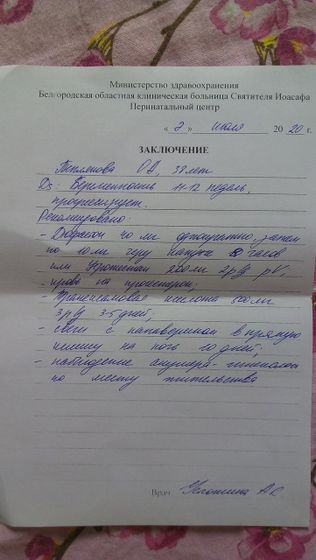 Министерство здравоохранения
Белгородская областная клиническая больница Святителя Иоасафа
Перинатальный центр
« 2 » июля 20 20 г.
ЗАКЛЮЧЕНИЕ
О.А, 39 лет
Ds: Беременность 11-12 недель,
прогрессирует.
Рекомендовано:
- Дюфастон 40 мг однократно, затем
по 10 мг через каждые 8 часов
или Утрожестан 200 мг 2 р/д pV;
- кровь на прогестерон;
- Транексамовая кислота 500 мг
3 р/д 3-5 дней;
- свечи с папаверином в прямую
кишку на ночь 10 дней;
- наблюдение акушера-гинеколога
по месту жительства
Врач